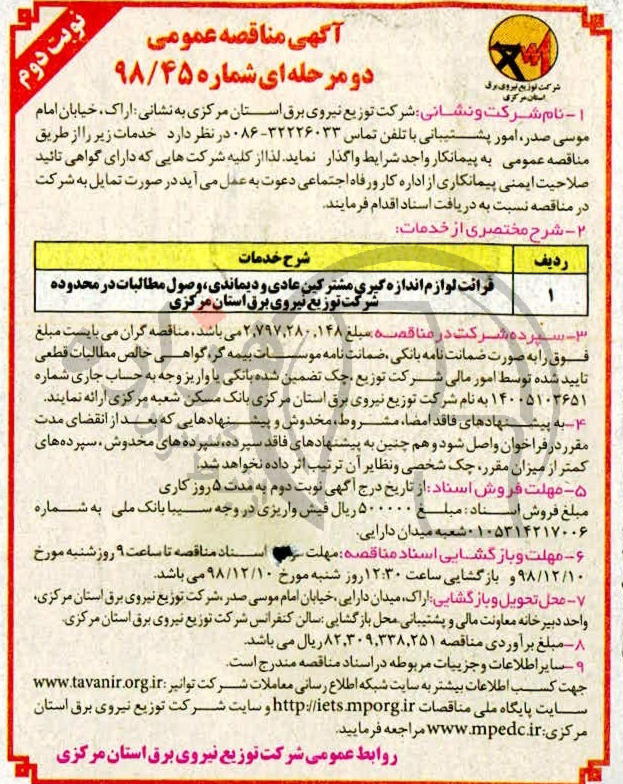 نوبت دوم
آگهی مناقصه عمومی
دو مرحله ای شماره ۹۸/۴۵
شرکت توزیع نیروی برق
استان مرکزی
۱- نام شرکت و نشانی: شرکت توزیع نیروی برق استان مرکزی به نشانی: اراک، خیابان امام
موسی صدر، امور پشتیبانی با تلفن تماس ۳۲۲۲۶۰۳۳-۰۸۶ در نظر دارد خدمات زیر را از طریق
مناقصه عمومی به پیمانکار واجد شرایط واگذار نماید. لذا از کلیه شرکت هایی که دارای گواهی تائید
صلاحیت ایمنی پیمانکاری از اداره کار و رفاه اجتماعی دعوت به عمل می آید در صورت تمایل به شرکت
در مناقصه نسبت به دریافت اسناد اقدام فرمایند.
۲- شرح مختصری از خدمات:
ردیف شرح خدمات
۱ قرائت لوازم اندازه گیری مشترکین عادی و دیماندی، وصول مطالبات در محدوده
شرکت توزیع نیروی برق استان مرکزی
۳- سپرده شرکت در مناقصه: مبلغ ۲,۷۹۷,۲۸۰,۱۴۸ می باشد، مناقصه گران می بایست مبلغ
فوق را به صورت ضمانت نامه بانکی، ضمانت نامه موسسات بیمه گر، گواهی خالص مطالبات قطعی
تایید شده توسط امور مالی شرکت توزیع، چک تضمین شده بانکی یا واریز وجه به حساب جاری شماره
۱۴۰۰۵۱۰۳۶۵۱ به نام شرکت توزیع نیروی برق استان مرکزی بانک مسکن شعبه مرکزی ارائه نمایند.
۴- به پیشنهادهای فاقد امضا، مشروط، مخدوش و پیشنهادهایی که بعد از انقضای مدت
مقرر در فراخوان واصل شود و هم چنین به پیشنهادهای فاقد سپرده، سپرده های مخدوش، سپرده های
کمتر از میزان مقرر، چک شخصی و نظایر آن ترتیب اثر داده نخواهد شد.
۵- مهلت فروش اسناد: از تاریخ درج آگهی نوبت دوم به مدت ۵ روز کاری
مبلغ فروش اسناد: مبلغ ۵۰۰۰۰۰ ریال فیش واریزی در وجه سیبا بانک ملی به شماره
۰۱۰۵۳۱۴۲۱۷۰۰۶ شعبه میدان دارایی.
۶- مهلت و بازگشایی اسناد مناقصه: مهلت اسناد مناقصه تا ساعت ۹ روز شنبه مورخ
۹۸/۱۲/۱۰ و بازگشایی ساعت ۱۲:۳۰ روز شنبه مورخ ۹۸/۱۲/۱۰ می باشد.
۷- محل تحویل و بازگشایی: اراک، میدان دارایی، خیابان امام موسی صدر، شرکت توزیع نیروی برق استان مرکزی،
واحد دبیرخانه معاونت مالی و پشتیبانی. محل بازگشایی: سالن کنفرانس شرکت توزیع نیروی برق استان مرکزی.
۸- مبلغ برآوردی مناقصه ۸۲,۳۰۹,۳۳۸,۲۵۱ ریال می باشد.
۹- سایر اطلاعات و جزییات مربوطه در اسناد مناقصه مندرج است.
جهت کسب اطلاعات بیشتر به سایت شبکه اطلاع رسانی معاملات شرکت توانیر: www.tavanir.org.ir
سایت پایگاه ملی مناقصات http://iets.mporg.ir و سایت شرکت توزیع نیروی برق استان
مرکزی: www.mpedc.ir مراجعه فرمایید.
روابط عمومی شرکت توزیع نیروی برق استان مرکزی